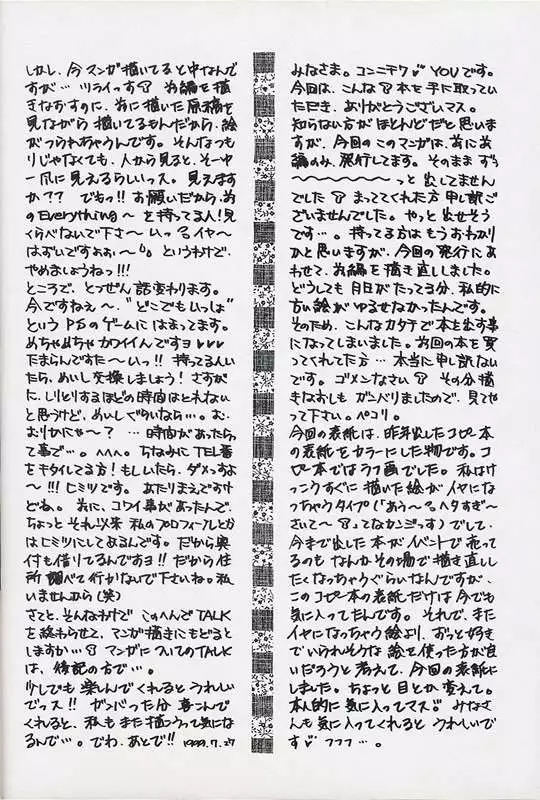 みなさま。コンニチワ♥ YOUです。
今回は、こんな本を手に取ってい
ただき、ありがとうございマス。
知らない方がほとんどだと思いま
すが、今回のこのマンガは、前に前
編のみ、発行してます。そのまま ずぅ
〜〜〜〜〜〜〜っと 出してません
でした まっててくれた方 申し訳ご
ざいませんでした。やっと出せそう
です…。持ってる方は もうおわかり
かと思いますが、今回の発行にあ
わせて、前編を描き直ししました。
どうしても 月日がたってる分、私的に
古い絵が ゆるせなかったんです。
そのため、こんなカタチで本を出す事
になってしまいました。前回の本を買
ってくれてた方… 本当に申し訳ない
です。ゴメンなさい その分描
きなおしも ガンバりましたので、見てや
って下さい。ペコリ。
今回の表紙は、昨年出したコピー本
の表紙をカラーにした物です。コ
ピー本ではラフ画でした。私はけ
っこうすぐに描いた絵がイヤになっ
ちゃうタイプ(「あう〜 ヘタすぎ〜
さいて〜 」ってなカンジっす)でして、
今まで出した本がイベントで売って
るのも なんかその場で描き直しし
たくなっちゃうぐらいなんですが、
このコピー本の表紙だけは今でも
気に入ってたんです。それで、また
イヤになっちゃう絵より、ずっと好き
でいられそうな 絵を使った方が良
いだろうと考えて、今回の表紙に
しました。ちょっと 目とか変えて。
本人的に気に入ってマス♥ みなさ
んも気に入ってくれると うれしいで
す♥ フフフ…。
しかし、今マンガ描いてると中なんで
すが… ツライっす 前編を描
きなおすのに、前に描いた原稿を
見ながら 描いてるもんだから、絵
がつられちゃうんです。そんなつも
りじゃなくても、人から見ると、そー中
一爪に見えるらしいっス。見えます
か?? でもっ!! お願いだから、前
のEverything〜 を持ってる人!見
くらべないで下さ〜いっ イヤ〜
はずいですよぉ〜 というわけで、
やめましょうねっ!!!
ところで、とつぜん話変わります。
今ですねぇ〜、"どこでもいっしょ"
という PSのゲームに はまってます。
めちゃめちゃ カワイイんですヨ♥♥♥
たまらんですた〜いっ!! 持ってる人い
たら、めいし交換しましょう! さすが
に、しりとりするほどの時間はとれない
と思うけど、めいしぐらいなら…。む、
むりかにゃ〜? …時間があったら
って事で…。^^^。ちなみに TEL番
をキタイしてる方! もしいたら、ダメっすよ
〜!!! ヒミツです。あたりまえですけ
どね。前に、コワイ事があったんで、
ちょっと それ以来 私のプロフィールとか
はヒミツにしてあるんです。だから奥
付も借りてるんですヨ!! だから住
所 調べて行かないで下さいね。私
いませんから(笑)
さてと、そんなわけで このへんでTALK
を終わらせて、マンガ描きにもどると
しますか… マンガについてのTALK
は、後記の方で…。
少しでも 楽しんでくれると うれしい
でっス!! ガンバった分 喜こんで
くれると、私もまた描こうって気にな
るんで…。でわ、あとで!! 1999.7.27